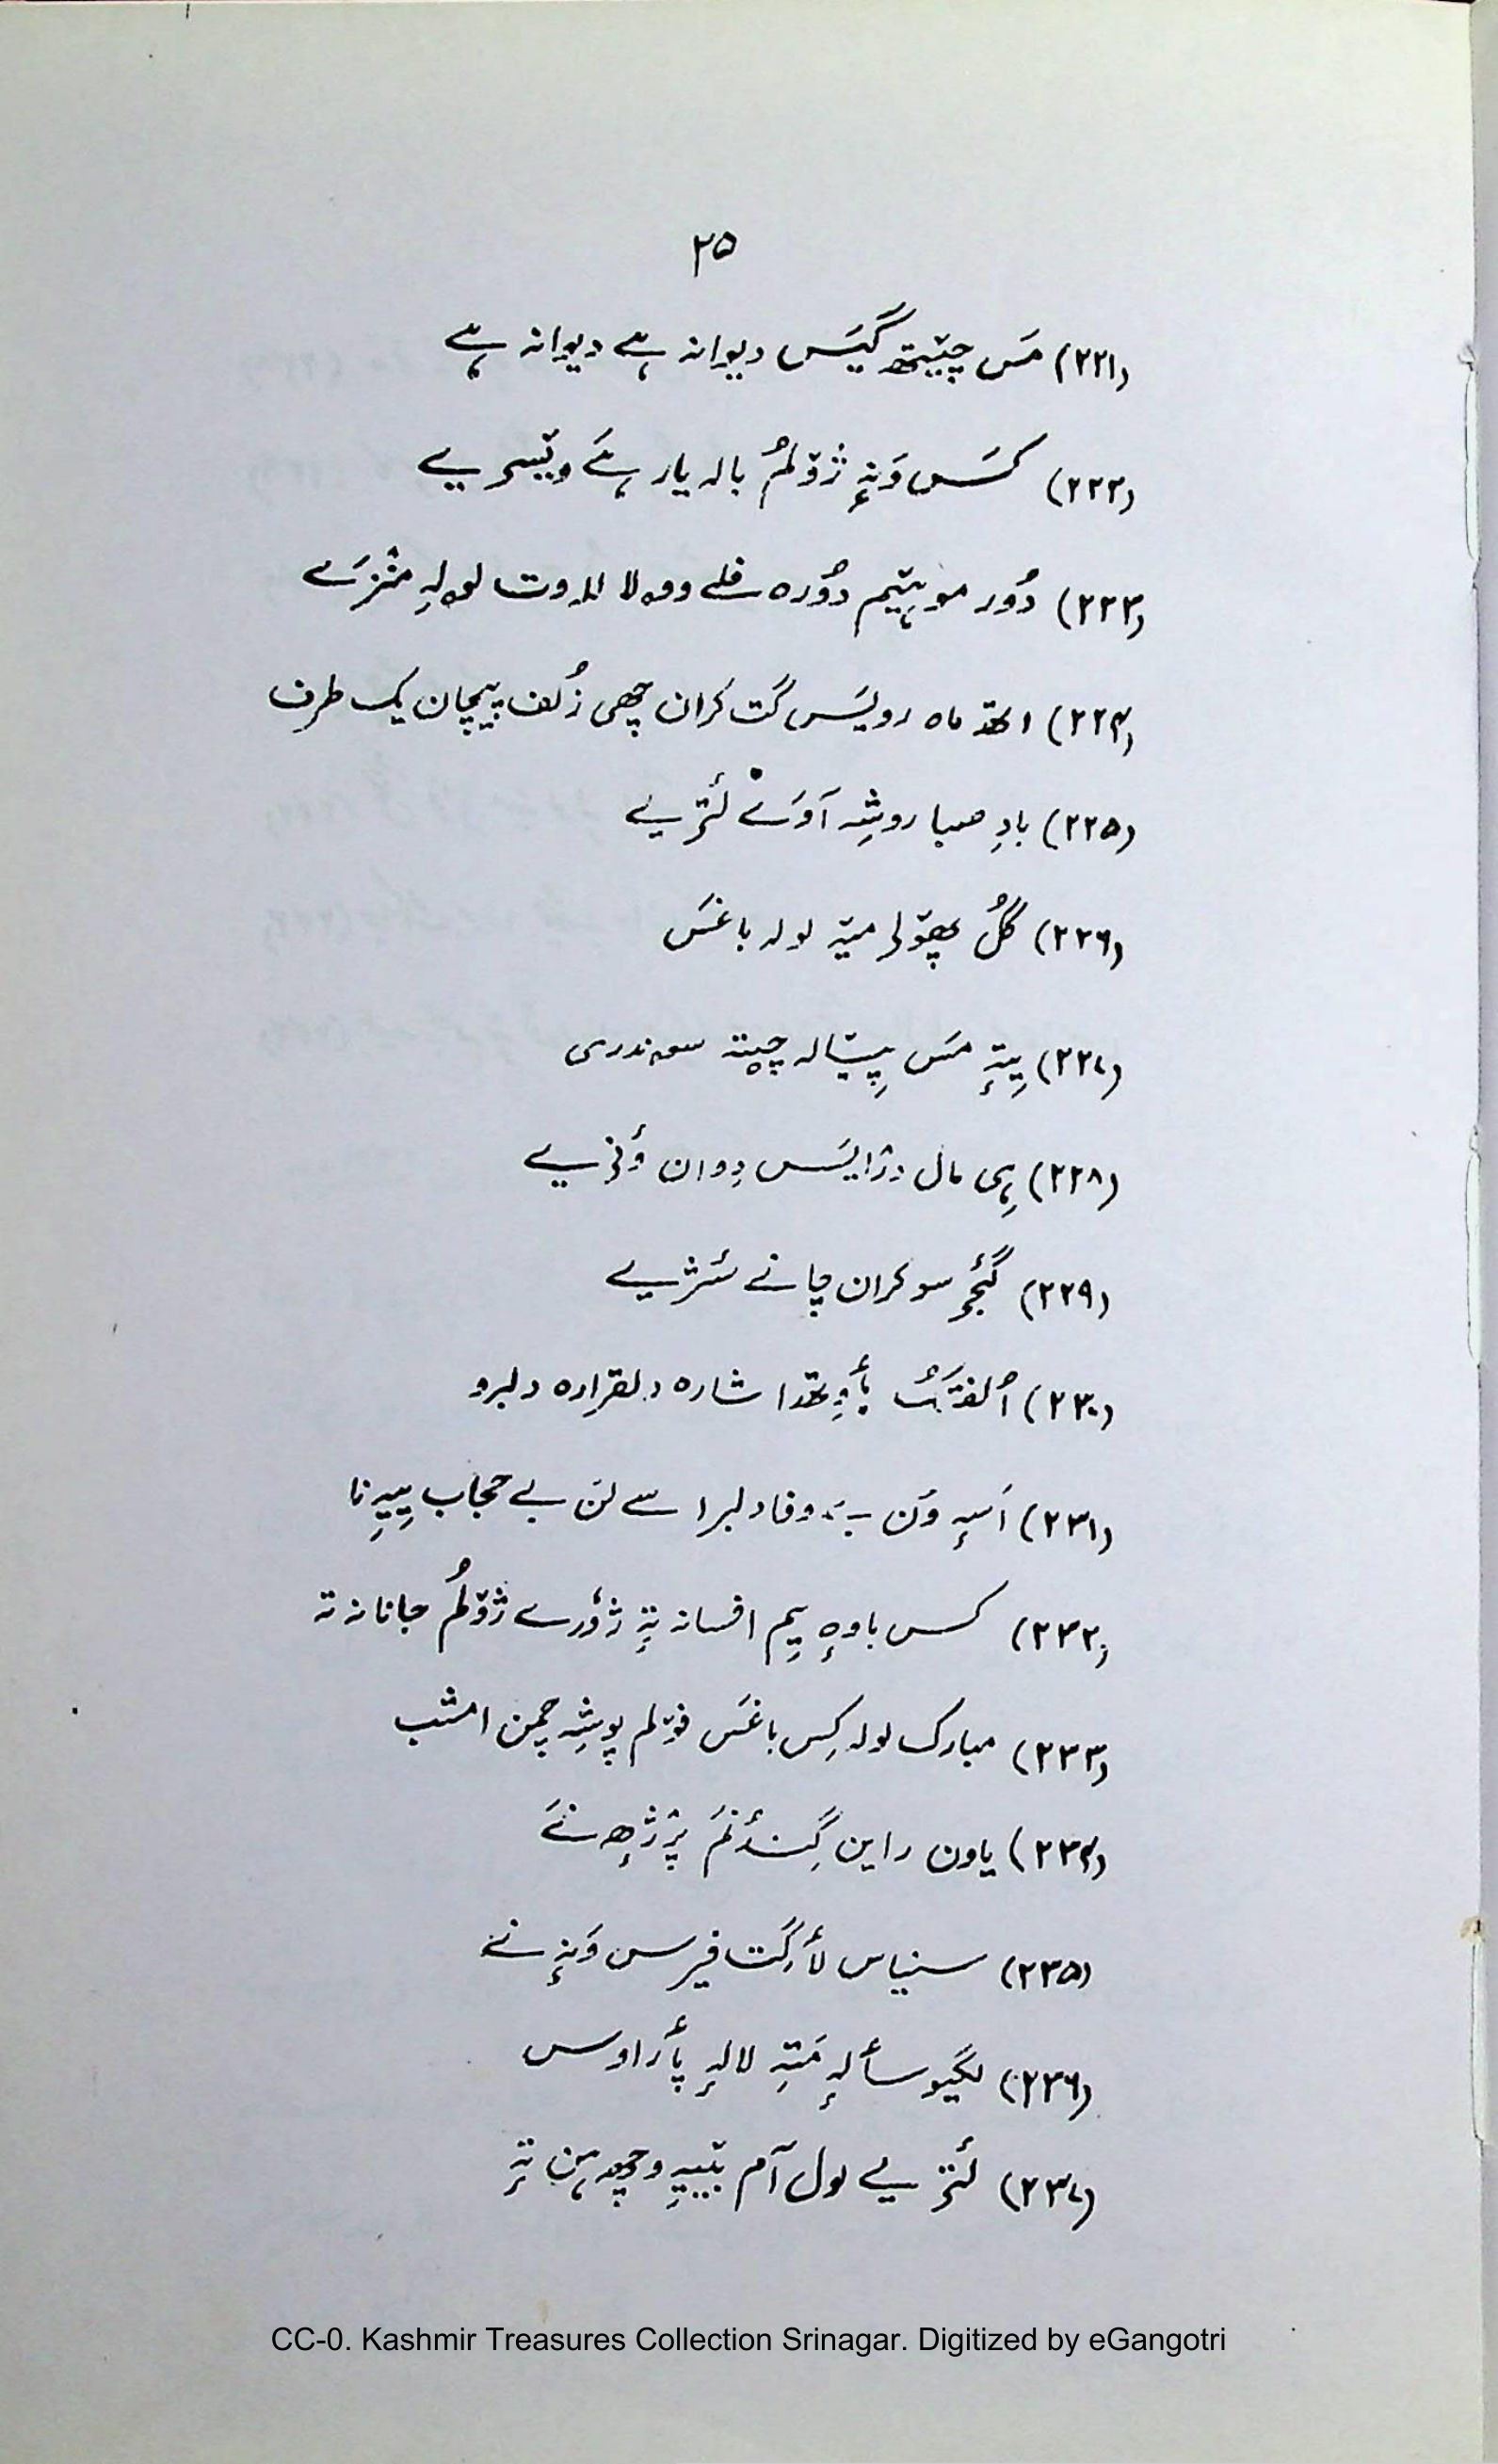 ۲۵
(۲۲۱) مَس چیٚیتھ گیَس دیوانہ ہے دیوانہ ہے
(۲۲۲) کَس وَنہٕ ژوٚلمُ بالہ یار ہے ویٚسیے
(۲۲۳) دُور مو ہیٚیم دوٗرہ فلے وولا للہ وت لولہٕ منٛزَے
(۲۲۴) اتھ ماہ رویَس گَت کَران چھی زُلف پیچان یک طرف
(۲۲۵) بادِ صبا روشہِ آوَے لٔتی یے
(۲۲۶) گُل پھوٚلر میٚہ لولہ باغَس
(۲۲۷) یِتہٕ مَس پیٚالہ چیتہ سوندری
(۲۲۸) ہِی مال درٛایَس دِوان وٕنی یے
(۲۲۹) گٔجِ سو کران چانے سٔزیے
(۲۳۰) اُلفتَکُ باوتھ اشارہ دلقرارہ دلبرو
(۲۳۱) اَسہِ وَن بَہ وفا دلبرا سے لَن بے حجاب ییہِ نا
(۲۳۲) کس باوہٕ یِم افسانہ تہٕ ژوٗرے ژوٚلُم جانانہ تہ
(۲۳۳) مبارک لولہ کِس باغَس فوٚلم پوشہِ چمن امشب
(۲۳۴) یاون راین گِنٛدٔنَم پرٛژھ نَے
(۲۳۵) سنیاس لٲگِت فیرس وَنہٕ نے
(۲۳۶) لگیو سٲلہٕ مَتہِ لالہٕ پٲراوس
(۲۳۷) لٔتی یے لول آم بیٚیہِ وچھ ہن تہٕ
CC-0. Kashmir Treasures Collection Srinagar. Digitized by eGangotri